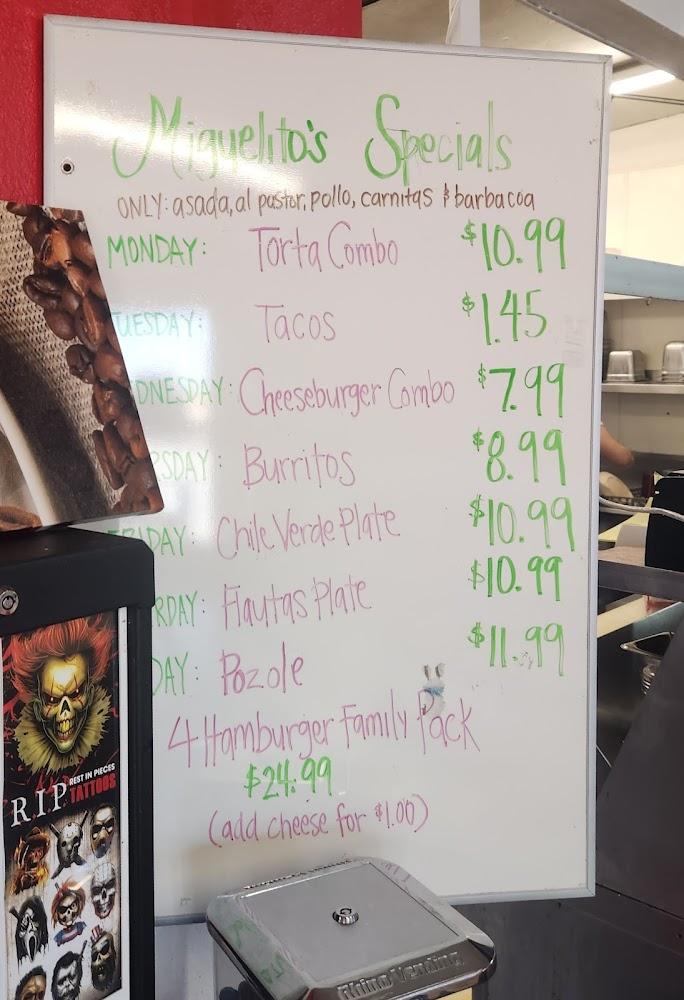 Miguelito's Specials
ONLY: asada, al pastor, pollo, carnitas & barbacoa
MONDAY: Torta Combo $10.99
TUESDAY: Tacos $1.45
DNESDAY: Cheeseburger Combo $7.99
RSDAY: Burritos $8.99
FRIDAY: Chile Verde Plate $10.99
RDAY: Flautas Plate $10.99
DAY: Pozole $11.99
4 Hamburger Family Pack
$24.99
(add cheese for $1.00)
REST IN PIECES
R.I.P TATTOOS
Rhino Vending